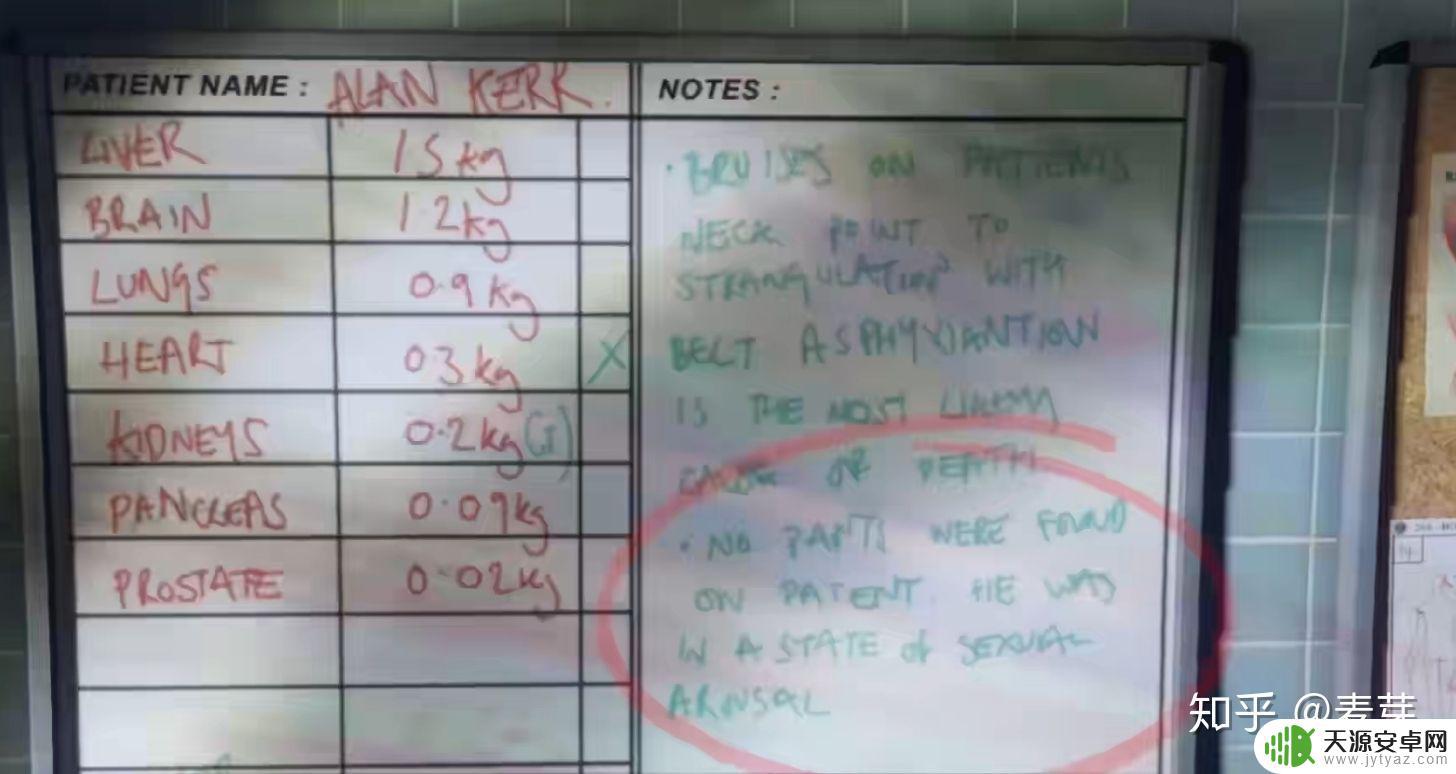 PATIENT NAME : ALAN KERR.
LIVER 1.5 kg
BRAIN 1.2kg
LUNGS 0.9 kg
HEART 0.3 kg X
KIDNEYS 0.2kg (I)
PANCREAS 0.09kg
PROSTATE 0.02kg
NOTES :
• BRUISES ON PATIENTS
NECK POINT TO
STRANGULATION WITH
BELT ASPHYXIANTION
IS THE MOST LIKELY
CAUSE OF DEATH
• NO PANTS WERE FOUND
ON PATIENT. HE WAS
IN A STATE of SEXUAL
AROUSAL
知乎 @麦芽
天源安卓网
www.jytyaz.com